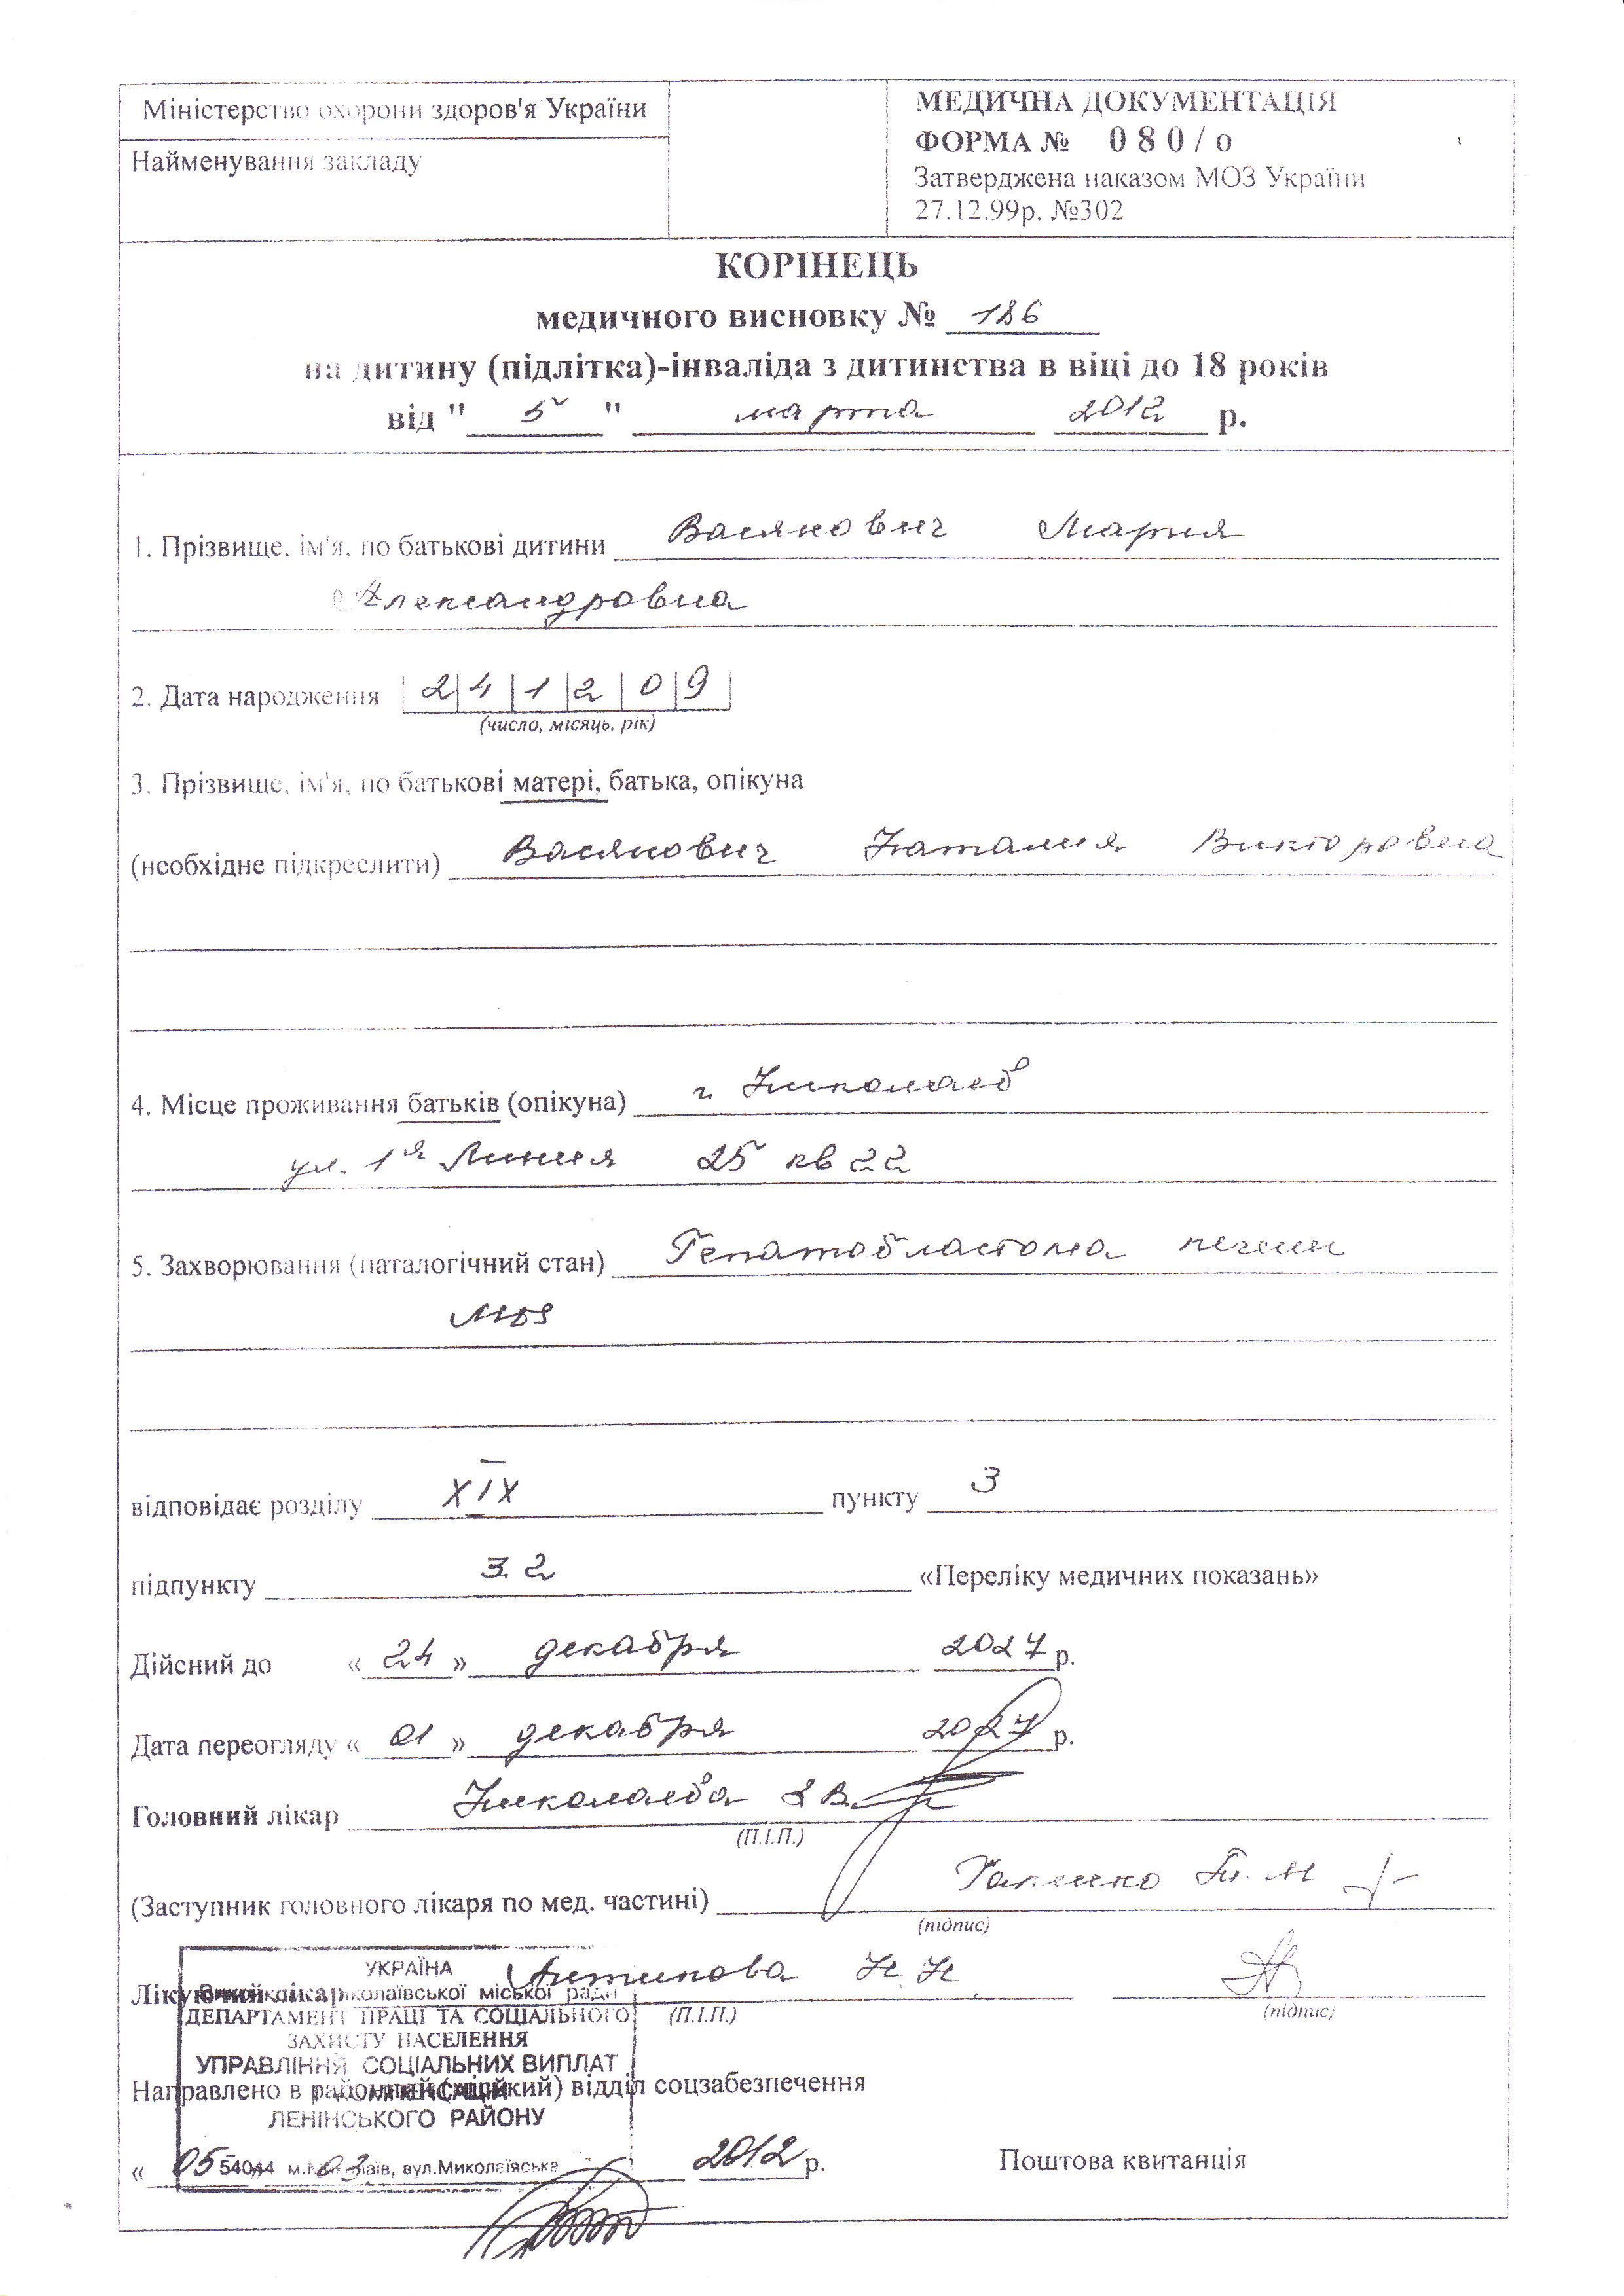 Міністерство охорони здоров'я України
Найменування закладу
МЕДИЧНА ДОКУМЕНТАЦІЯ
ФОРМА № 0 8 0 / о
Затверджена наказом МОЗ України
27.12.99р. №302
КОРІНЕЦЬ
медичного висновку № 186
на дитину (підлітка)-інваліда з дитинства в віці до 18 років
від " 5 " марта 2012 р.
1. Прізвище, ім'я, по батькові дитини Васянович Мария
Александровна
2. Дата народження 2 4 1 2 0 9
(число, місяць, рік)
3. Прізвище, ім'я, по батькові матері, батька, опікуна
(необхідне підкреслити) Васянович Наталия Викторовна
4. Місце проживання батьків (опікуна) г. Николаев
ул. 1я Линия 25 кв 22
5. Захворювання (паталогічний стан) Гепатобластома печени
відповідає розділу XIX пункту 3
підпункту 3.2 «Переліку медичних показань»
Дійсний до « 24 » декабря 2027 р.
Дата переогляду « 01 » декабря 2027 р.
Головний лікар Николаева В.
(П.І.П.)
(Заступник головного лікаря по мед. частині) Т. М
(підпис)
УКРАЇНА
Лікуючий лікар Антипова Н. Н.
Миколаївської міської ради
(П.І.П.) (підпис)
ДЕПАРТАМЕНТ ПРАЦІ ТА СОЦІАЛЬНОГО
ЗАХИСТУ НАСЕЛЕННЯ
УПРАВЛІННЯ СОЦІАЛЬНИХ ВИПЛАТ
Направлено в районний (міський) відділ соцзабезпечення
КОМПЕНСАЦІЙ
ЛЕНІНСЬКОГО РАЙОНУ
54044 м.Миколаїв, вул.Миколаївська
« 05 » 03 2012 р. Поштова квитанція